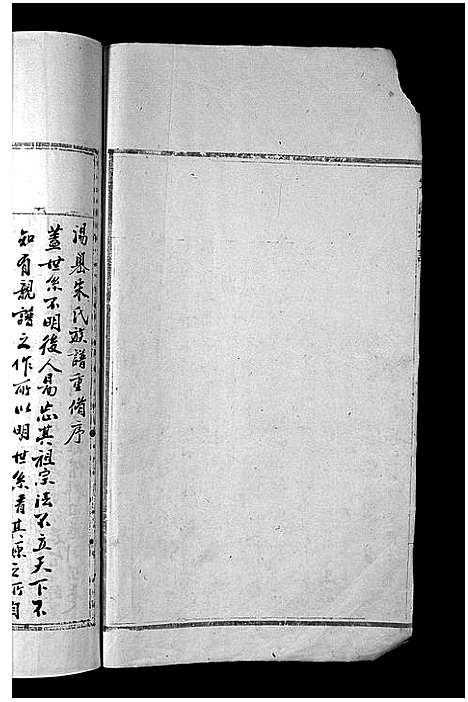 湯墅朱氏族譜重脩序
蓋世系不明後人易忘其祖宗法不立天下不
知有親譜之作所以明世系者其源之所自